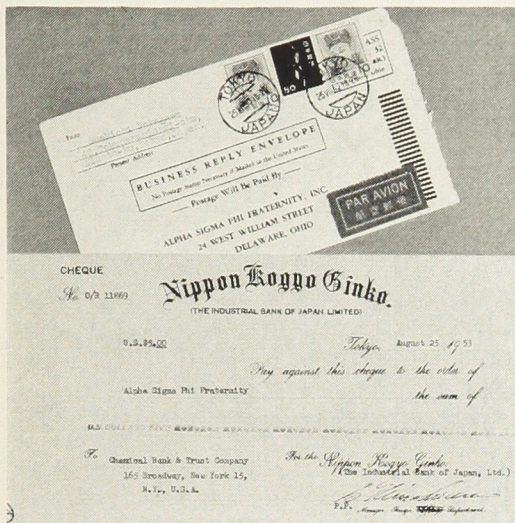 TOKYO
JAPAN
50
TOKYO
JAPAN
From
Present Address
BUSINESS REPLY ENVELOPE
No Postage Stamp Necessary if Mailed in the United States
Postage Will Be Paid By
ALPHA SIGMA PHI FRATERNITY, INC
24 WEST WILLIAM STREET
DELAWARE, OHIO
PAR AVION
CHEQUE
No. O/R 11869
Nippon Kogyo Ginko.
(THE INDUSTRIAL BANK OF JAPAN LIMITED)
U.S.$5.00
Tokyo, August 25 1953
Pay against this cheque to the order of
Alpha Sigma Phi Fraternity
the sum of
U.S. DOLLARS FIVE
To Chemical Bank & Trust Company
165 Broadway, New York 15,
N.Y., U.S.A.
For the Nippon Kogyo Ginko.
(The Industrial Bank of Japan, Ltd.)
P.P.
Manager Foreign Department